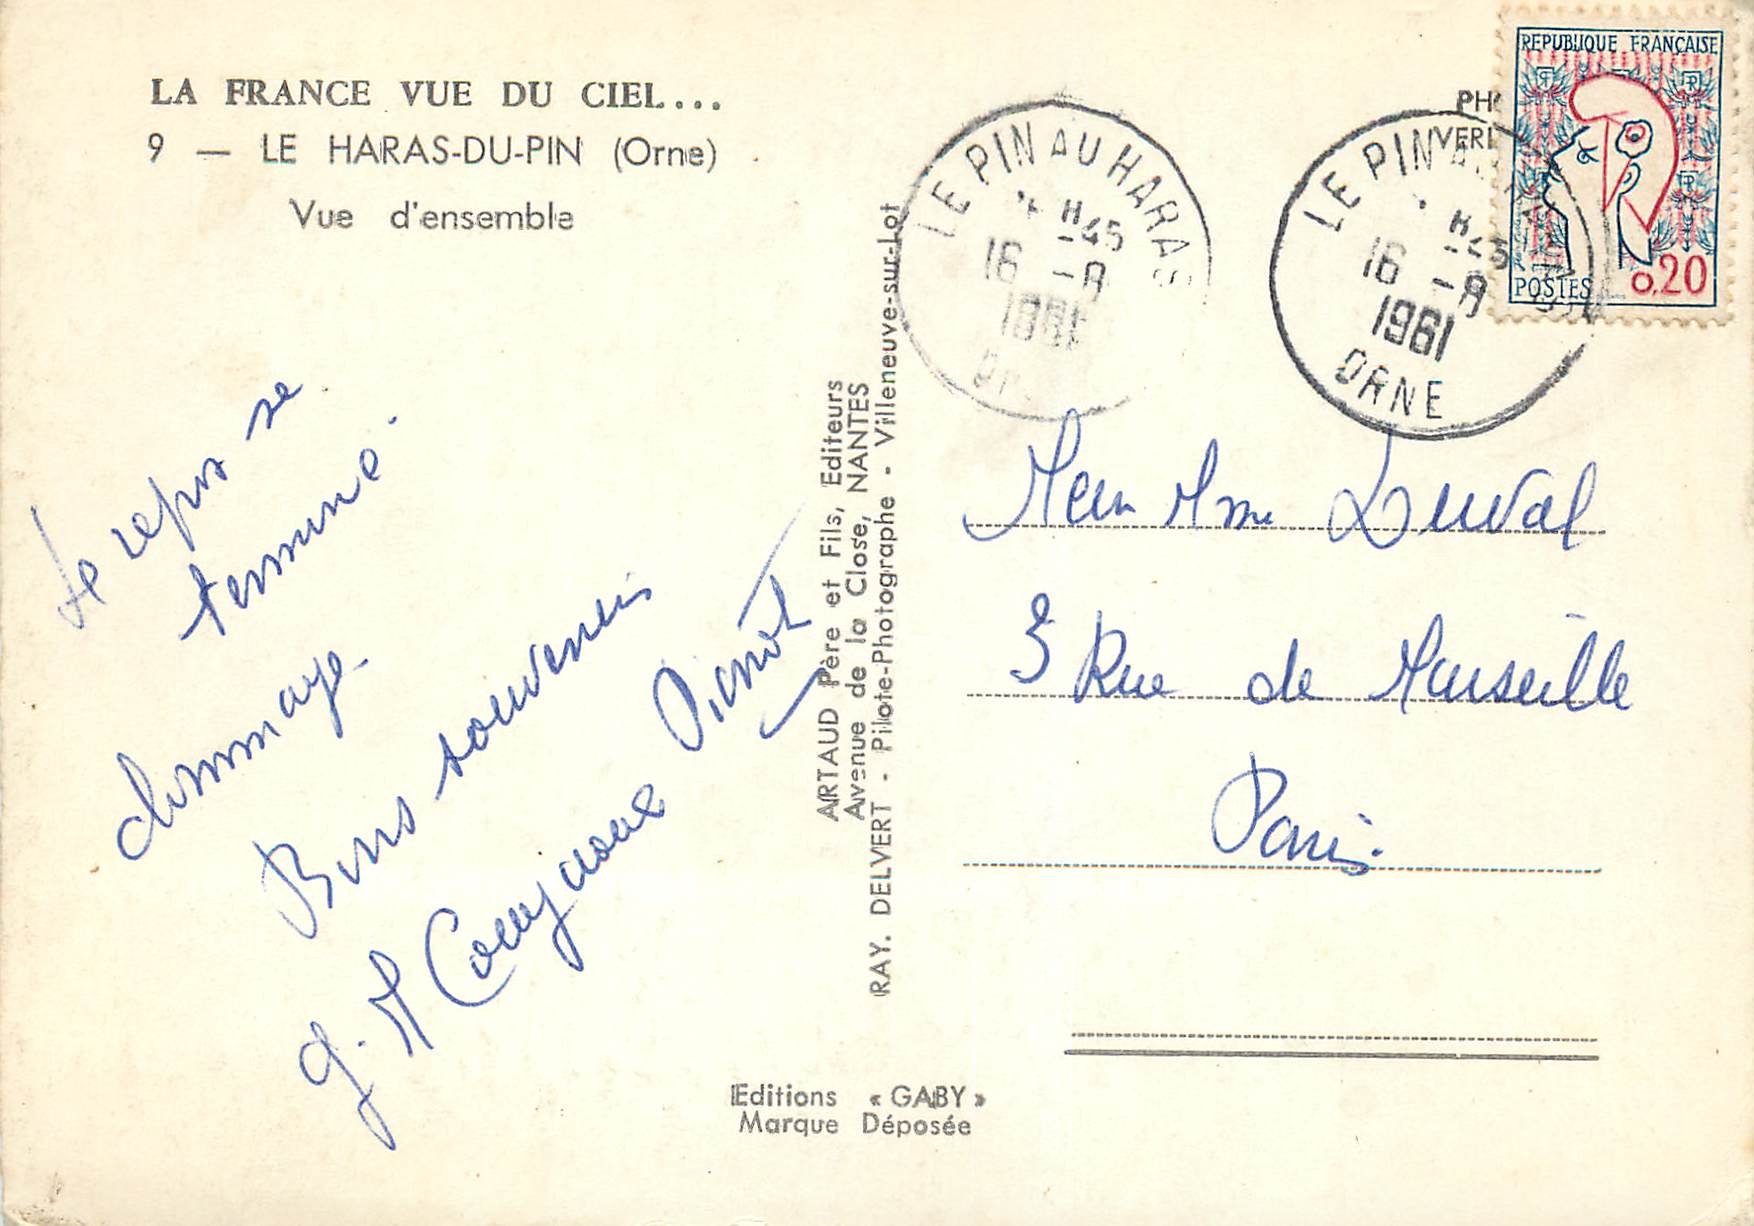 LA FRANCE VUE DU CIEL...
9 — LE HARAS-DU-PIN (Orne)
Vue d'ensemble
Le repos se
termine
dommage
Bons souvenirs
ARTAUD Père et Fils, Editeurs
Avenue de la Close, NANTES
RAY. DELVERT - Pilote-Photographe - Villeneuve-sur-Lot
Editions « GABY »
Marque Déposée
LE PIN AU HARAS
H45
16 -8
1961
ORNE
LE PIN AU
H45
16 -8
1961
ORNE
REPUBLIQUE FRANÇAISE
POSTES 0,20
Mme Duval
3 Rue de Marseille
Paris.